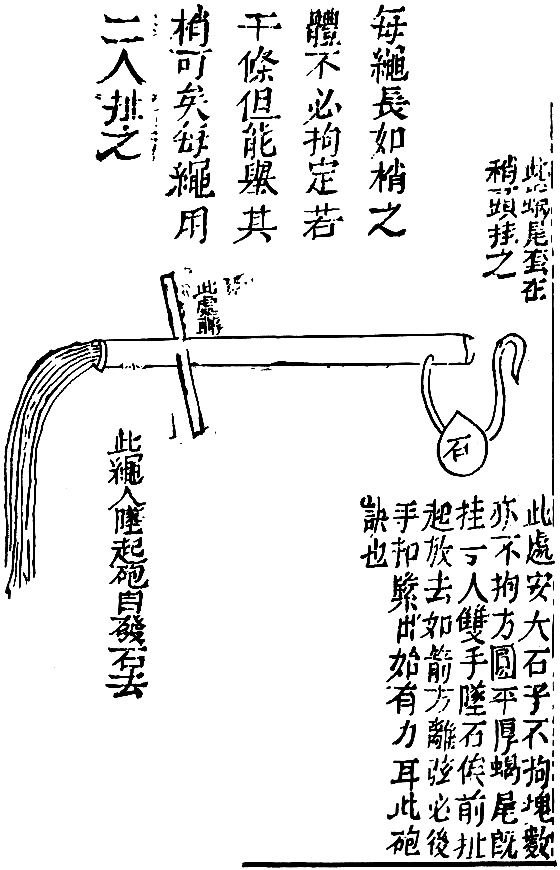 每繩長如梢之
體不必拘定若
干條但能舉其
梢可矣每繩用
二人扯之
此蝎尾套在
稍頭挂之
此處
石
此繩人墜起砲自發石去
此處安大石子不拘塊數
亦不拘方圓平厚蝎尾既
挂一人雙手墜石俟前扯
起放去如箭方離弦必後
手扣緊出始有力耳此砲
訣也